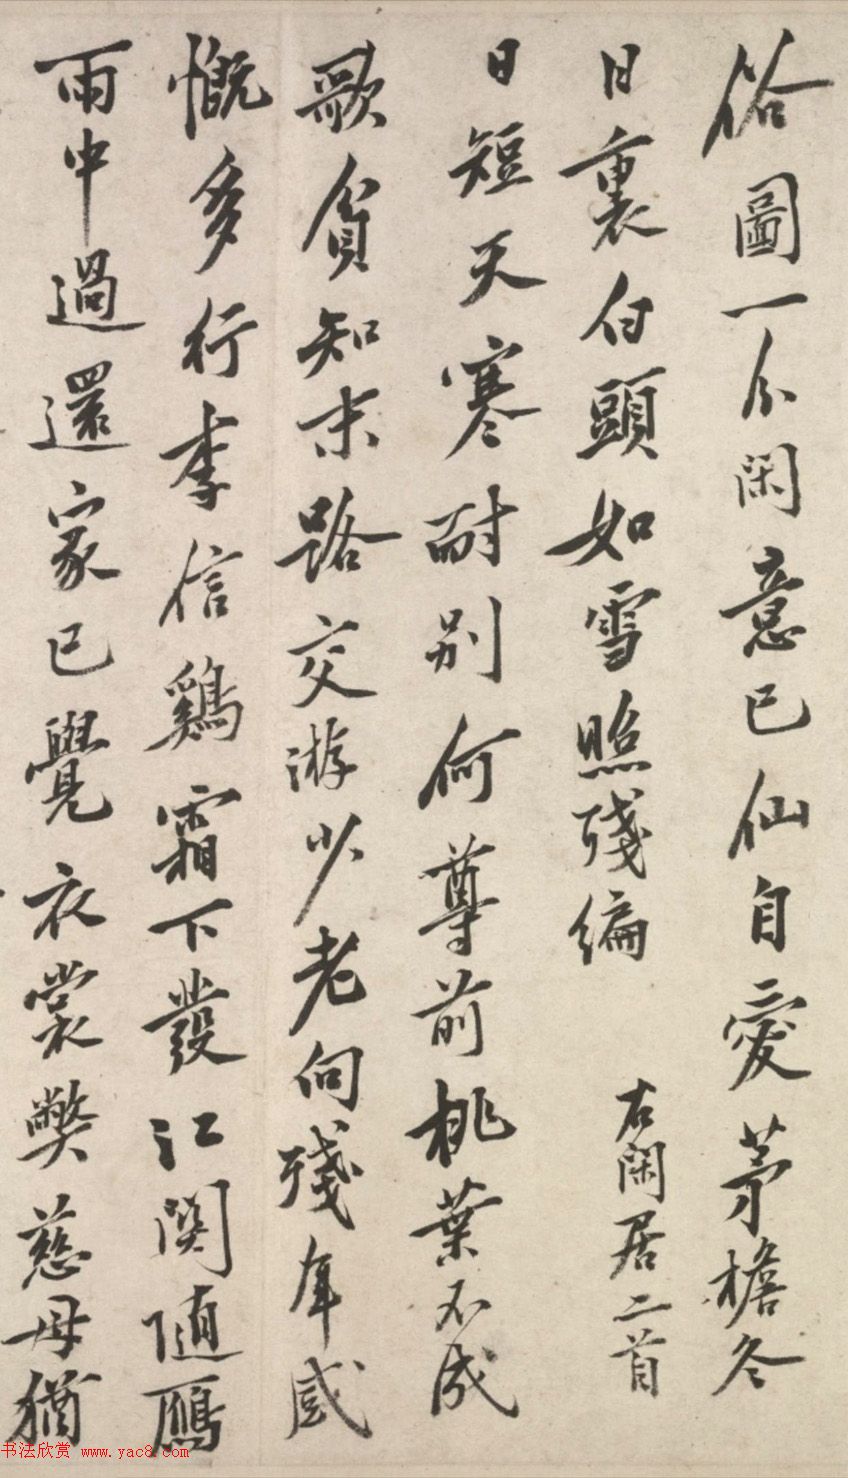 俗圖一分閑意已仙自愛茅檐冬
日裏白頭如雪照殘編
右閑居二首
日短天寒耐別何尊前桃葉不成
歌貧知末路交游少老向殘年感
慨多行李信鷄霜下發江関随鴈
雨中過還家已覺衣裳弊慈母猶
书法欣赏 www.yac8.com